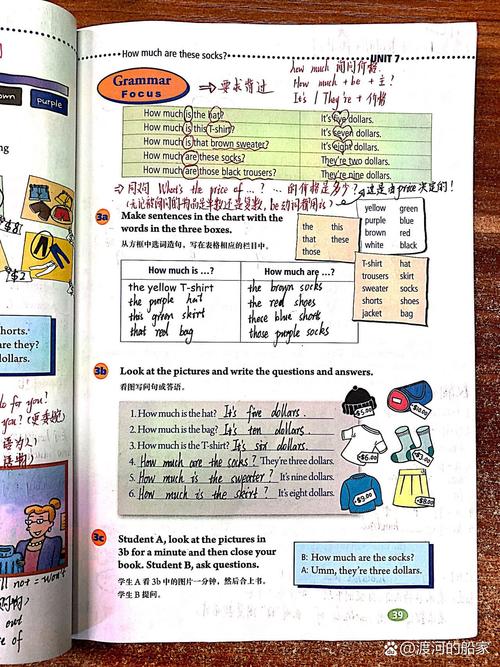 How much are these socks?
UNIT 7
how much 询问价格
How much + be + 主?
It's / They're + 价格
Grammar
Focus
⇒ 要求背过
How much is the hat?
It's five dollars.
How much is this T-shirt?
It's seven dollars.
How much is that brown sweater?
It's eight dollars.
How much are these socks?
They're two dollars.
How much are those black trousers?
They're nine dollars.
What's the price of ...?
3a
Make sentences in the chart with the
words in the three boxes.
从方框中选词造句，写在表格相应的栏目中。
the this
that these
those
yellow green
purple blue
brown red
white black
T-shirt hat
trousers skirt
sweater socks
shorts shoes
jacket bag
How much is ...?
How much are ...?
the yellow T-shirt
the brown socks
the purple hat
the red shoes
this green skirt
these blue shorts
that red bag
those purple socks
3b
Look at the pictures and write the questions and answers.
看图写问句或答语。
1. How much is the hat? It's five dollars.
2. How much is the bag? It's ten dollars.
3. How much is the T-shirt? It's six dollars.
4. How much are the socks? They're three dollars.
5. How much is the sweater? It's nine dollars.
6. How much is the skirt? It's eight dollars.
$5.00
$6.00
$3.00
$9.00
$8.00
3c
Student A, look at the pictures in
3b for a minute and then close your
book. Student B, ask questions.
学生 A 看 3b 中的图片一分钟，然后合上书。
学生 B 提问。
B: How much are the socks?
A: Umm, they're three dollars.
39
own
purple
ng
$8
$2
horts.
are they?
ollars.
for you?
out
e of
渡河的船家